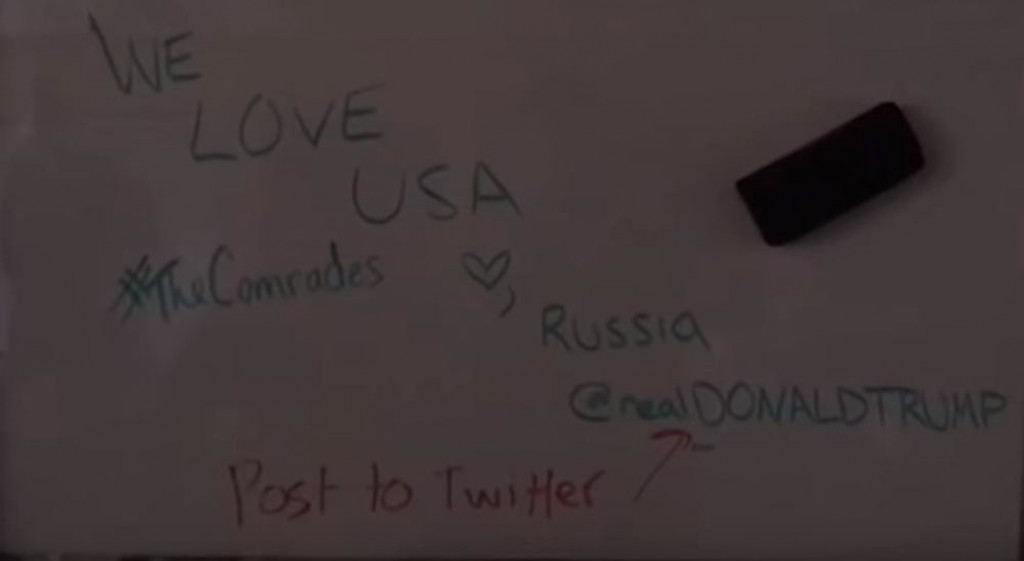 WE
LOVE
USA
#TheComrades
Russia
@realDONALDTRUMP
Post to Twitter